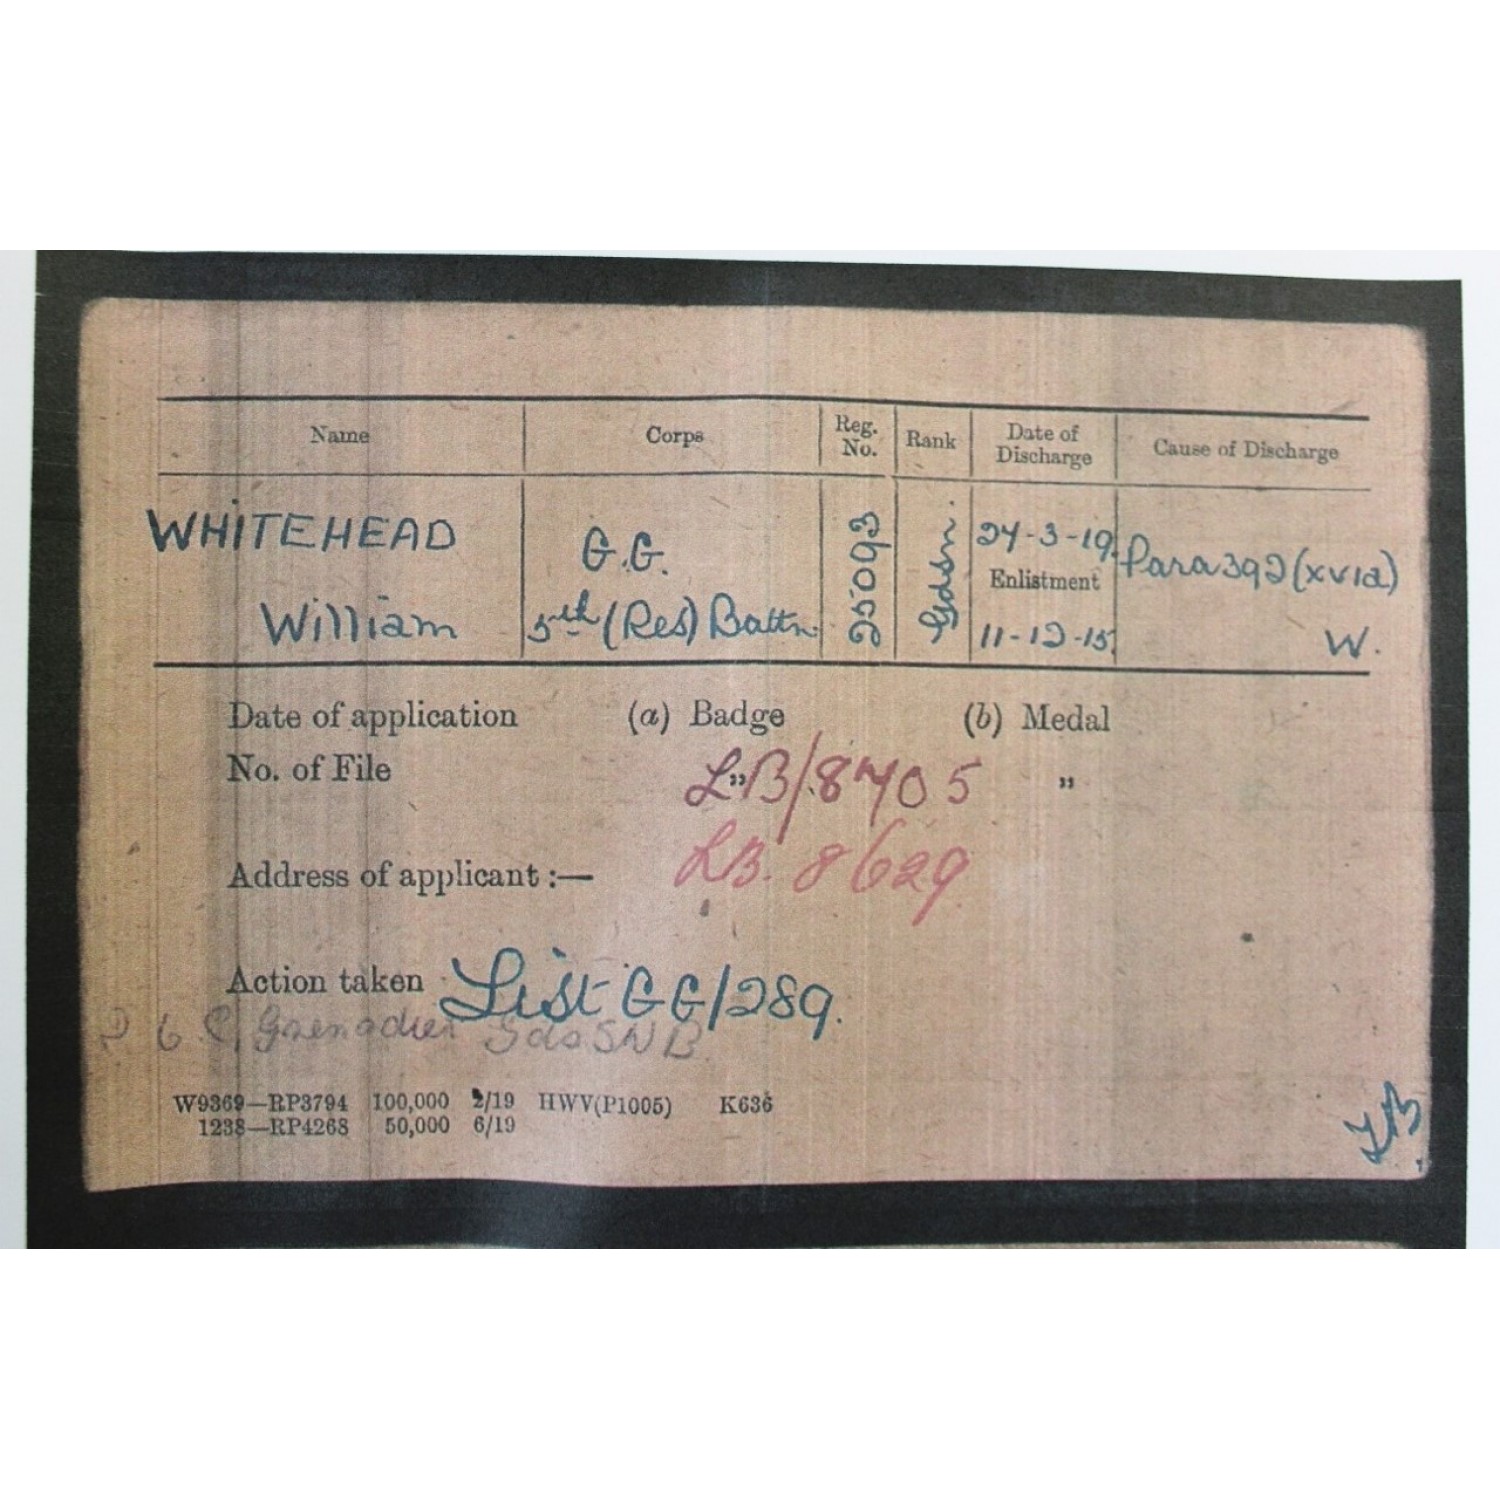 Name Corps Reg. No. Rank Date of Discharge Cause of Discharge
WHITEHEAD G.G. 25093 Gdsn. 24-3-19 Para 392 (xvia)
Enlistment
William 5th (Res) Battn. 11-12-15 W.
Date of application (a) Badge (b) Medal
No. of File " LB/8705 "
LB. 8629
Address of applicant :—
Action taken List GG/289.
Grenadier Gds SWB.
W9369—RP3794 100,000 2/19 HWV(P1005) K636
1238—RP4268 50,000 6/19